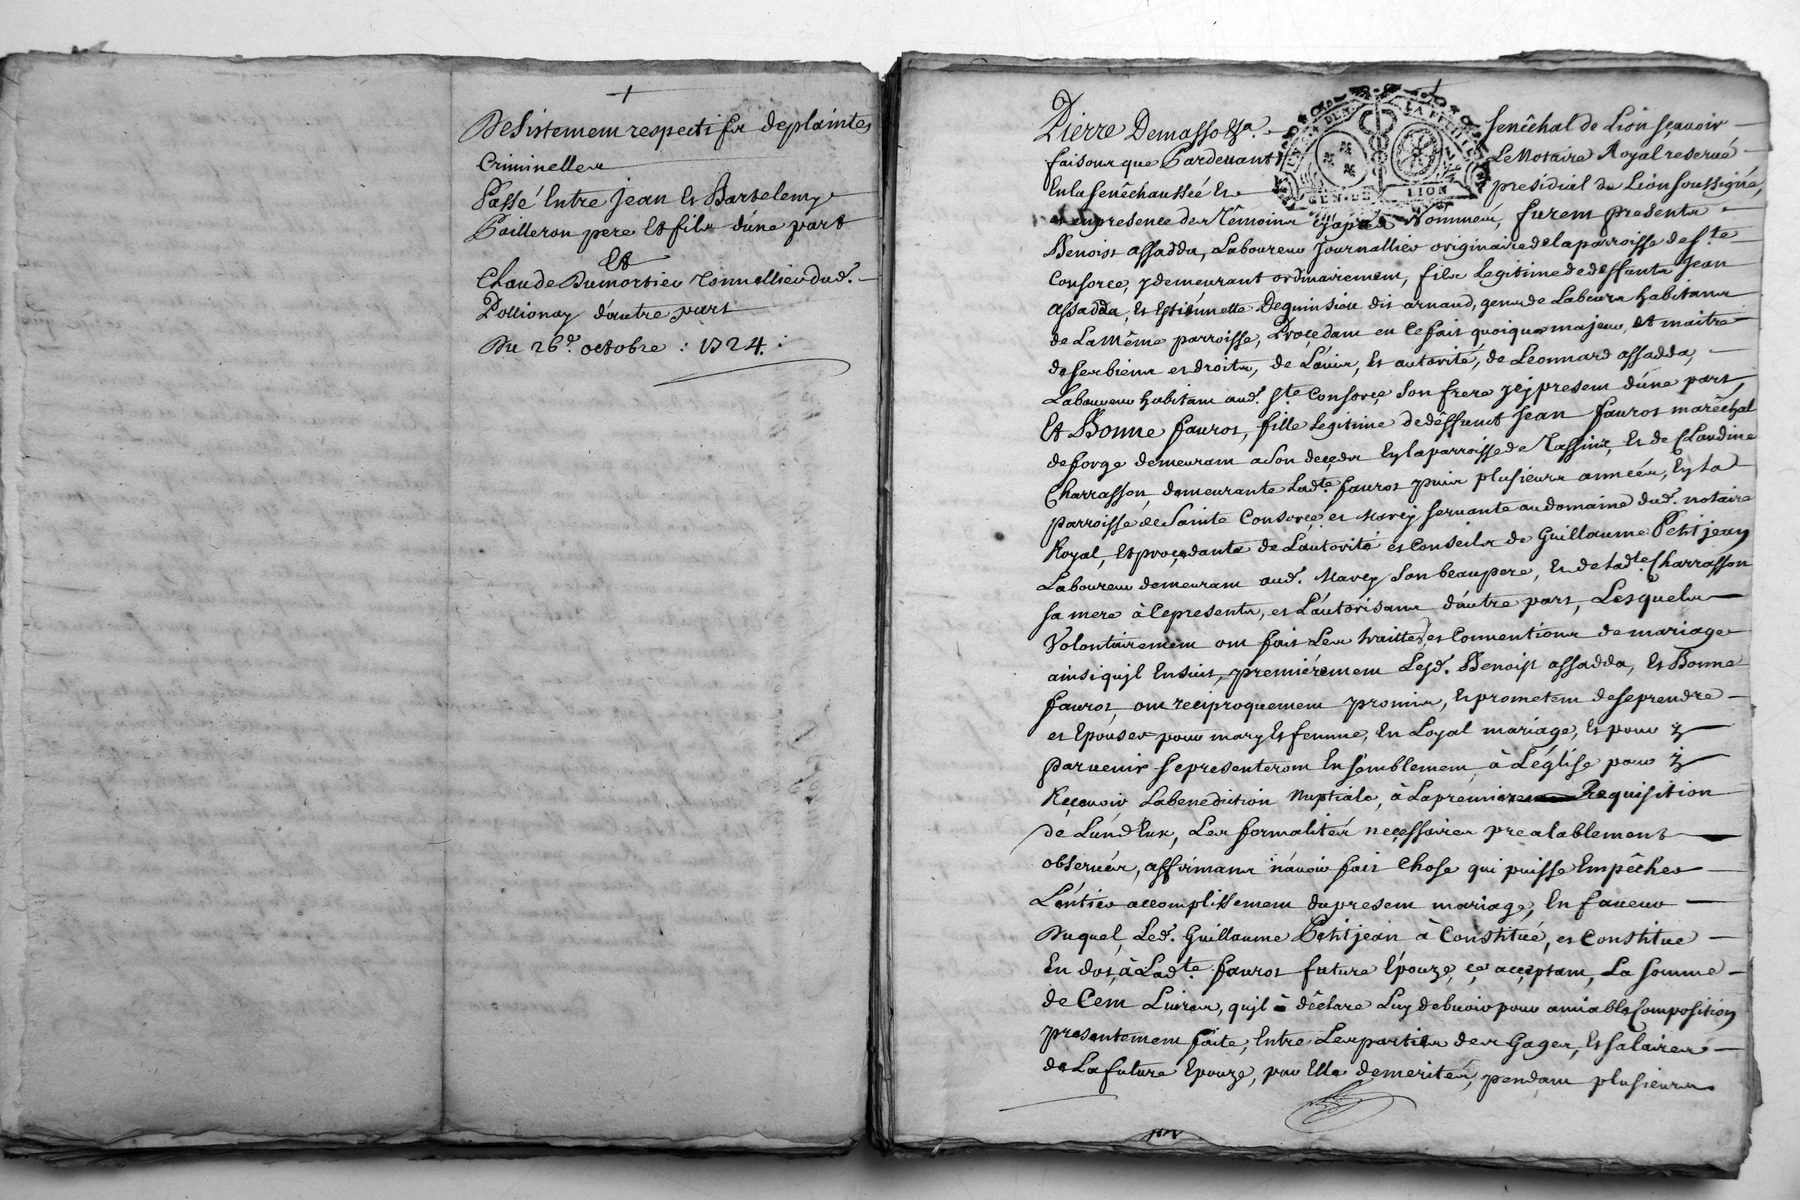 Desistement respectifs de plaintes
Criminelles
Passé Entre Jean et Bartelemy
Pailleron pere Et fils d'une part
Et
Claude Dumortier Tonnellier dud.
Pollionay d'autre part
Du 26e. octobre : 1724 :
Pierre Demasso &a. senêchal de Lion sçavoir
faisons que Pardevant Le Notaire Royal reservé
En la senêchaussée Et presidial de Lion soussigné,
GEN. DE LION
et en presence des Têmoins Cy aprés Nommés, furent presents
Benoist assadda, Laboureur Journallier originaire de la parroisse de Ste
Consorce, y demeurant ordinairement, fils Legitime de deffunts Jean
assadda, Et Estiennette Dequinsieu dit arnaud, gens de Labeurs habitans
de La Même parroisse, Proçedant en Ce fait quoique majeur, et maitre
de ses biens et droits, de L'avis, Et autorité, de Leonnard assadda,
Laboureur habitant aud. Ste Consorçe son frere icy present d'une part,
Et Bonne fauros, fille Legitime de dêffunct Jean fauros marêchal
de forge demeurant a Son deçeds En la parroisse de Tassins, Et de Claudine
Charrasson demeurante Ladte. fauros puis plusieurs années, En la
parroisse de Sainte Consorçe et Marcy servante au domaine dud. notaire
Royal, Et proçedante de L'autorité et Conseils de Guillaume Petitjean
Laboureur demeurant aud. Marcy Son beaupere, Et de Ladte. Charrasson
sa mere à Ce presents, et L'autorisans d'autre part, Lesquels
Volontairement ont fait Les traittés, et Conventions de mariage
ainsi qu'il Ensuit, premiérement Lesd. Benoist assadda, Et Bonne
fauros, ont reciproquement promis, Et prometent de se prendre
et Epouser pour mary Et femme, En Loyal mariage, Et pour y
parvenir se presenteront Ensemblement à L'église pour y
Reçevoir La benediction Nuptiale, à La premiere Requisition
de L'un d'Eux, Les formalités neçessaires prealablement
observées, affirmans n'avoir fait Chose qui puisse Empêcher
L'entier accomplissement du present mariage, En faveur
Duquel, Led. Guillaume Petitjean à Constitué, et Constitue
En dot, à Ladte. fauros future Epouze, çe acçeptant, La somme
de Cent Livres, qu'il à dêclaré Luy debvoir pour amiable Composition
presentement faite, Entre Les parties des Gages, Et salaires
de La future Epouze, par Elle demerités, pendant plusieurs